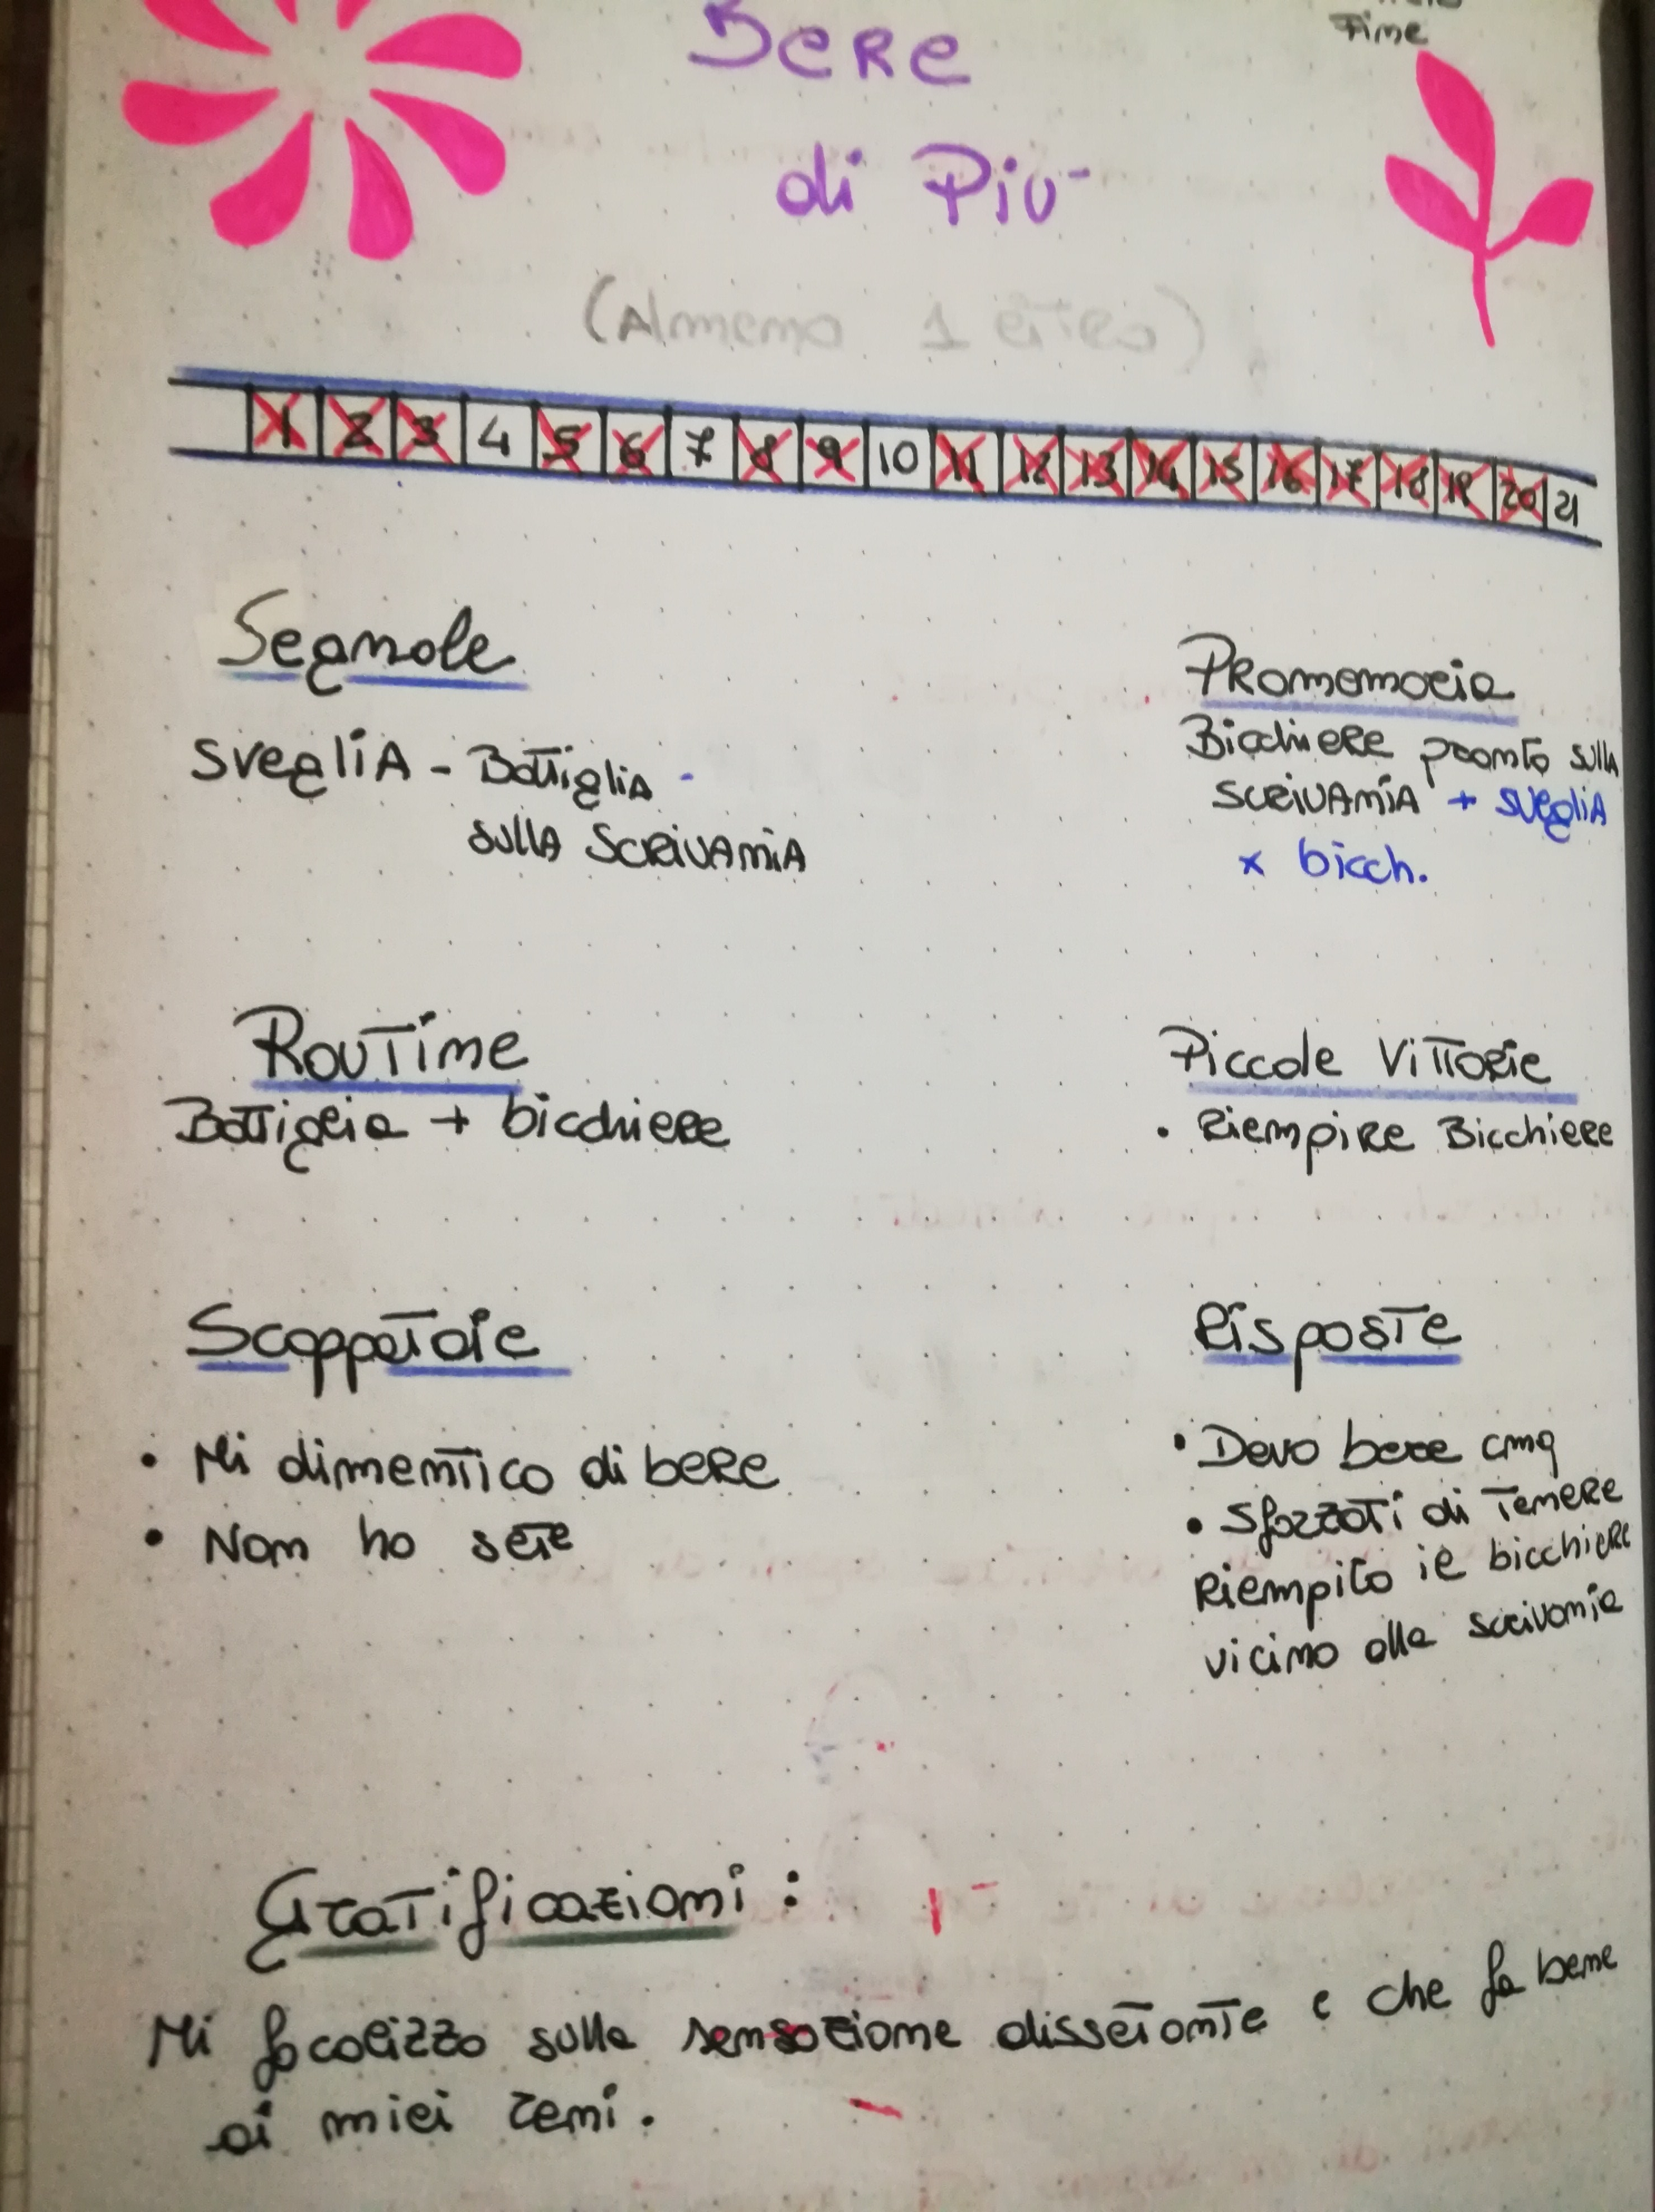 Fine
Bere
di Più
(Almeno 1 litro)
1 2 3 4 5 6 7 8 9 10 11 12 13 14 15 16 17 18 19 20 21
Segnale
Sveglia - Bottiglia -
sulla scrivania
Promemoria
Bicchiere pronto sulla
scrivania + sveglia
x bicch.
Routine
Bottiglia + bicchiere
Piccole Vittorie
• Riempire Bicchiere
Scappatoie
• Mi dimentico di bere
• Non ho sete
Risposte
• Devo bere cmq
• Sforzati di tenere
riempito il bicchiere
vicino alla scrivania
Gratificazioni:
Mi focalizzo sulla sensazione dissetante e che fa bene
ai miei reni.